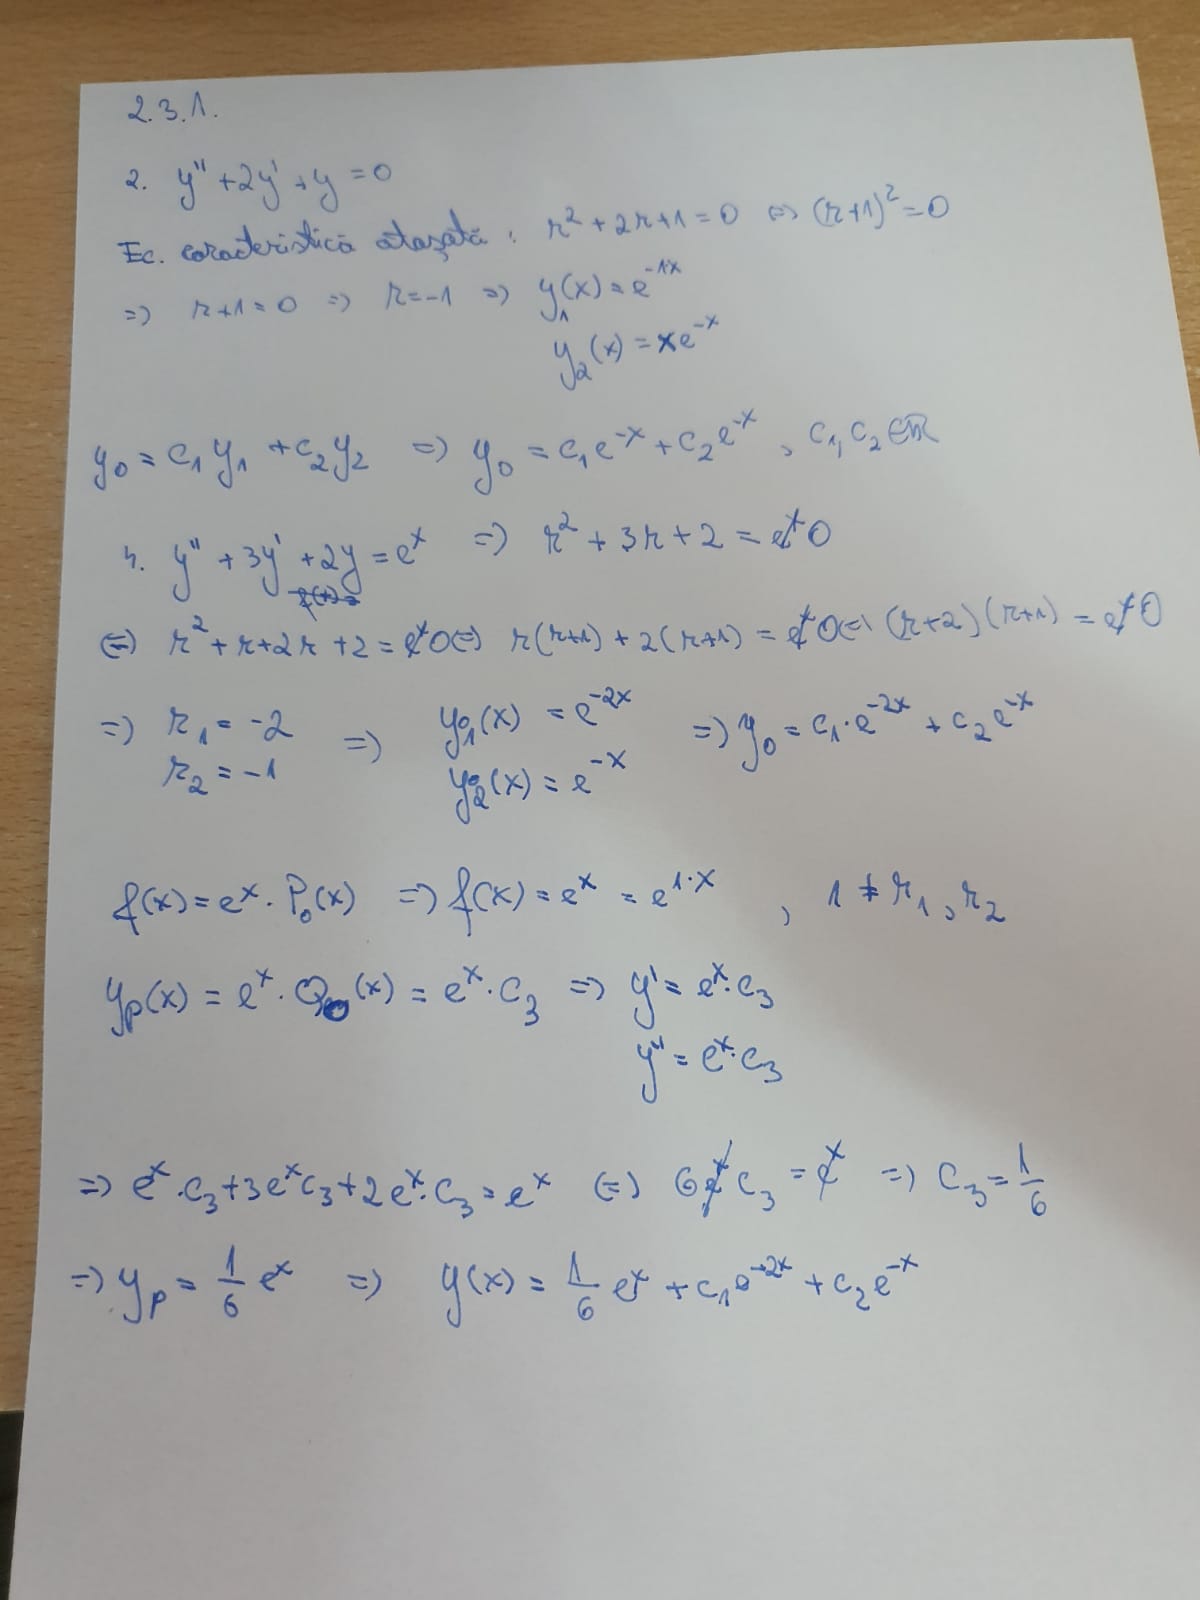 2.3.1.
2. y'' + 2y' + y = 0
Ec. caracteristică atașată: r² + 2r + 1 = 0 ⇔ (r+1)² = 0
⇒ r+1 = 0 ⇒ r = -1 ⇒ y₁(x) = e^{-1x}
y₂(x) = xe^{-x}
y₀ = c₁y₁ + c₂y₂ ⇒ y₀ = c₁e^{-x} + c₂e^{-x}, c₁, c₂ ∈ ℝ
4. y'' + 3y' + 2y = e^x ⇒ r² + 3r + 2 = 0
⇔ r² + r + 2r + 2 = 0 ⇔ r(r+1) + 2(r+1) = 0 ⇔ (r+2)(r+1) = 0
⇒ r₁ = -2 ⇒ y₀₁(x) = e^{-2x} ⇒ y₀ = c₁·e^{-2x} + c₂e^{-x}
r₂ = -1 y₀₂(x) = e^{-x}
f(x) = e^x · P₀(x) ⇒ f(x) = e^x = e^{1·x}, 1 ≠ r₁, r₂
y_p(x) = e^x · Q₀(x) = e^x · c₃ ⇒ y' = e^x·c₃
y'' = e^x·c₃
⇒ e^x·c₃ + 3e^x c₃ + 2e^x·c₃ = e^x ⇔ 6e^x c₃ = e^x ⇒ c₃ = 1/6
⇒ y_p = 1/6 e^x ⇒ y(x) = 1/6 e^x + c₁e^{-2x} + c₂e^{-x}